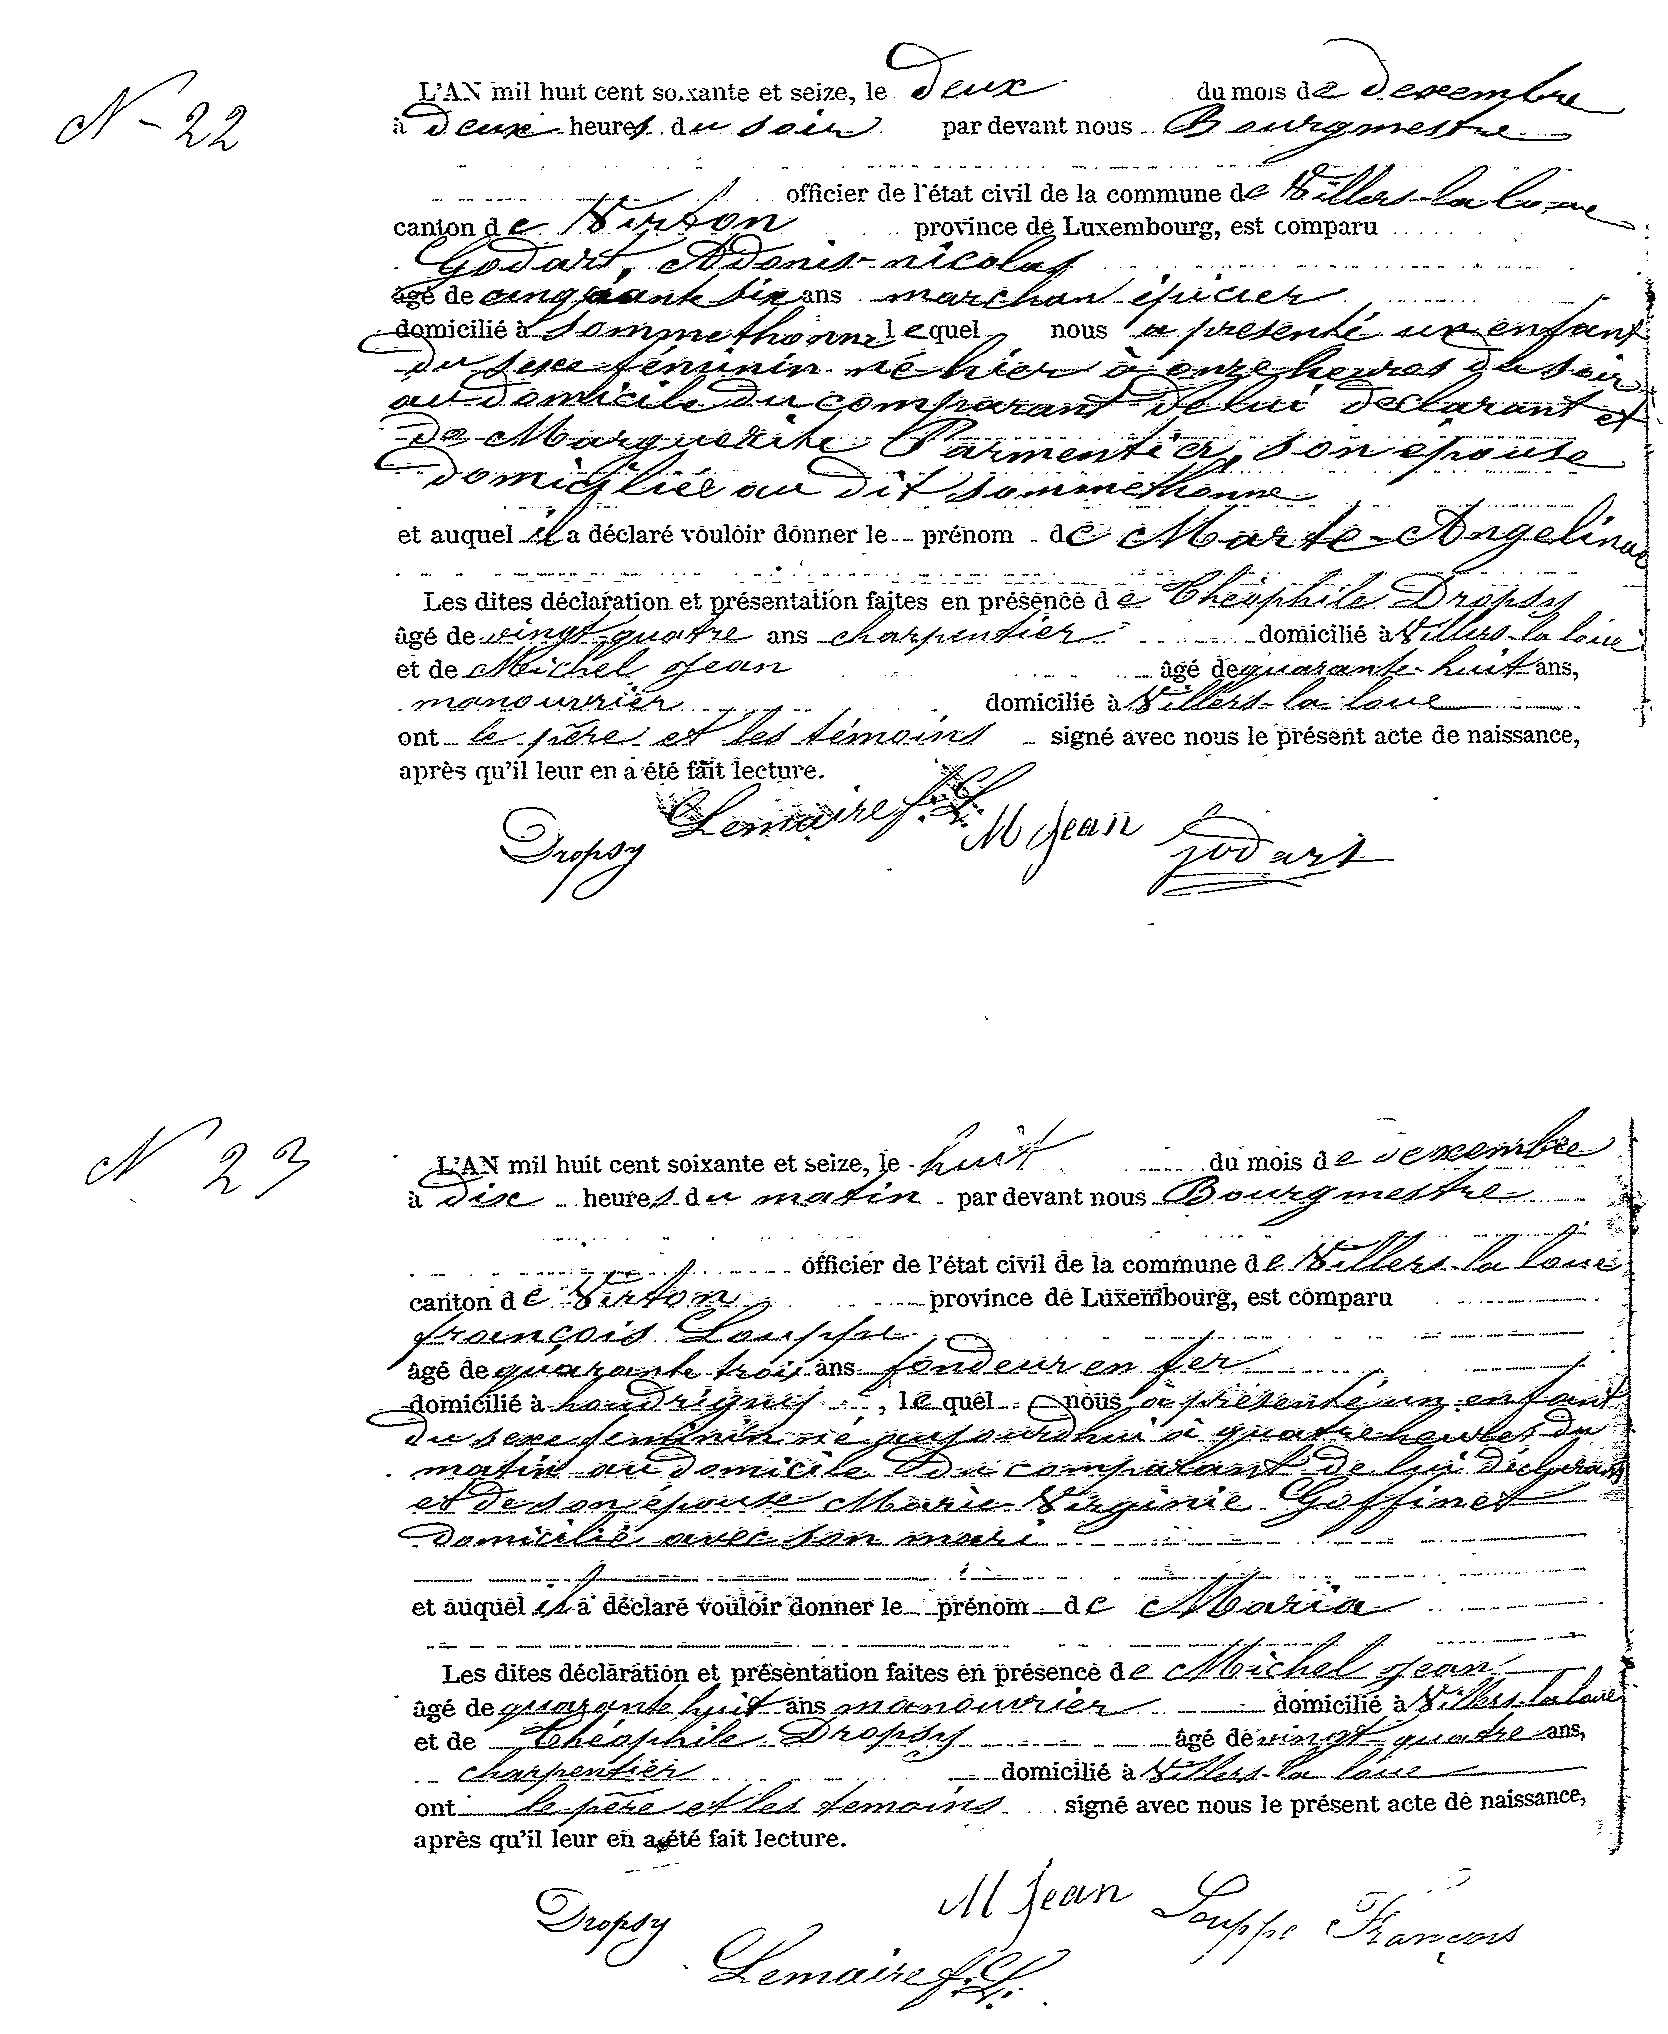 N - 22
L'AN mil huit cent soixante et seize, le Deux du mois de Decembre
à Deux heures du soir par devant nous Bourgmestre
officier de l'état civil de la commune de Villers-la loue
canton de Virton province de Luxembourg, est comparu
Godart, Adonis-nicolas
âgé de cinquante six ans marchan épicier
domicilié à Sommethonne lequel nous a présenté un enfant
du sexe féminin né hier à onze heures du soir
au domicile du comparant de lui declarant et
de Marguerite Parmentier, son épouse
domiciliée au dit sommethonne
et auquel il a déclaré vouloir donner le prénom de Marte-Angelina
Les dites déclaration et présentation faites en présence de Théophile Dropsy
âgé de vingt quatre ans charpentier domicilié à Villers-la loue
et de Michel Jean âgé de quarante-huit ans,
manouvrier domicilié à Villers-la loue
ont le père et les témoins signé avec nous le présent acte de naissance,
après qu'il leur en a été fait lecture.
Dropsy Lemaire f. L. M Jean Godart
N 23
L'AN mil huit cent soixante et seize, le huit du mois de decembre
à dix heures du matin par devant nous Bourgmestre
officier de l'état civil de la commune de Villers-la loue
canton de Virton province de Luxembourg, est comparu
françois Louppe
âgé de quarante trois ans fondeur en fer
domicilié à houdrigny, lequel nous a présenté un enfant
du sexe feminin né aujourdhui à quatre heures du
matin au domicile du comparant de lui déclarant
et de son épouse Marie Virginie Goffinet
domicilié avec son mari
et auquel il a déclaré vouloir donner le prénom de Maria
Les dites déclaration et présentation faites en présence de Michel Jean
âgé de quarante huit ans manouvrier domicilié à Villers-la loue
et de Théophile Dropsy âgé de vingt quatre ans,
charpentier domicilié à Villers-la loue
ont le père et les temoins signé avec nous le présent acte de naissance,
après qu'il leur en a été fait lecture.
Dropsy M Jean Louppe François
Lemaire f. L.